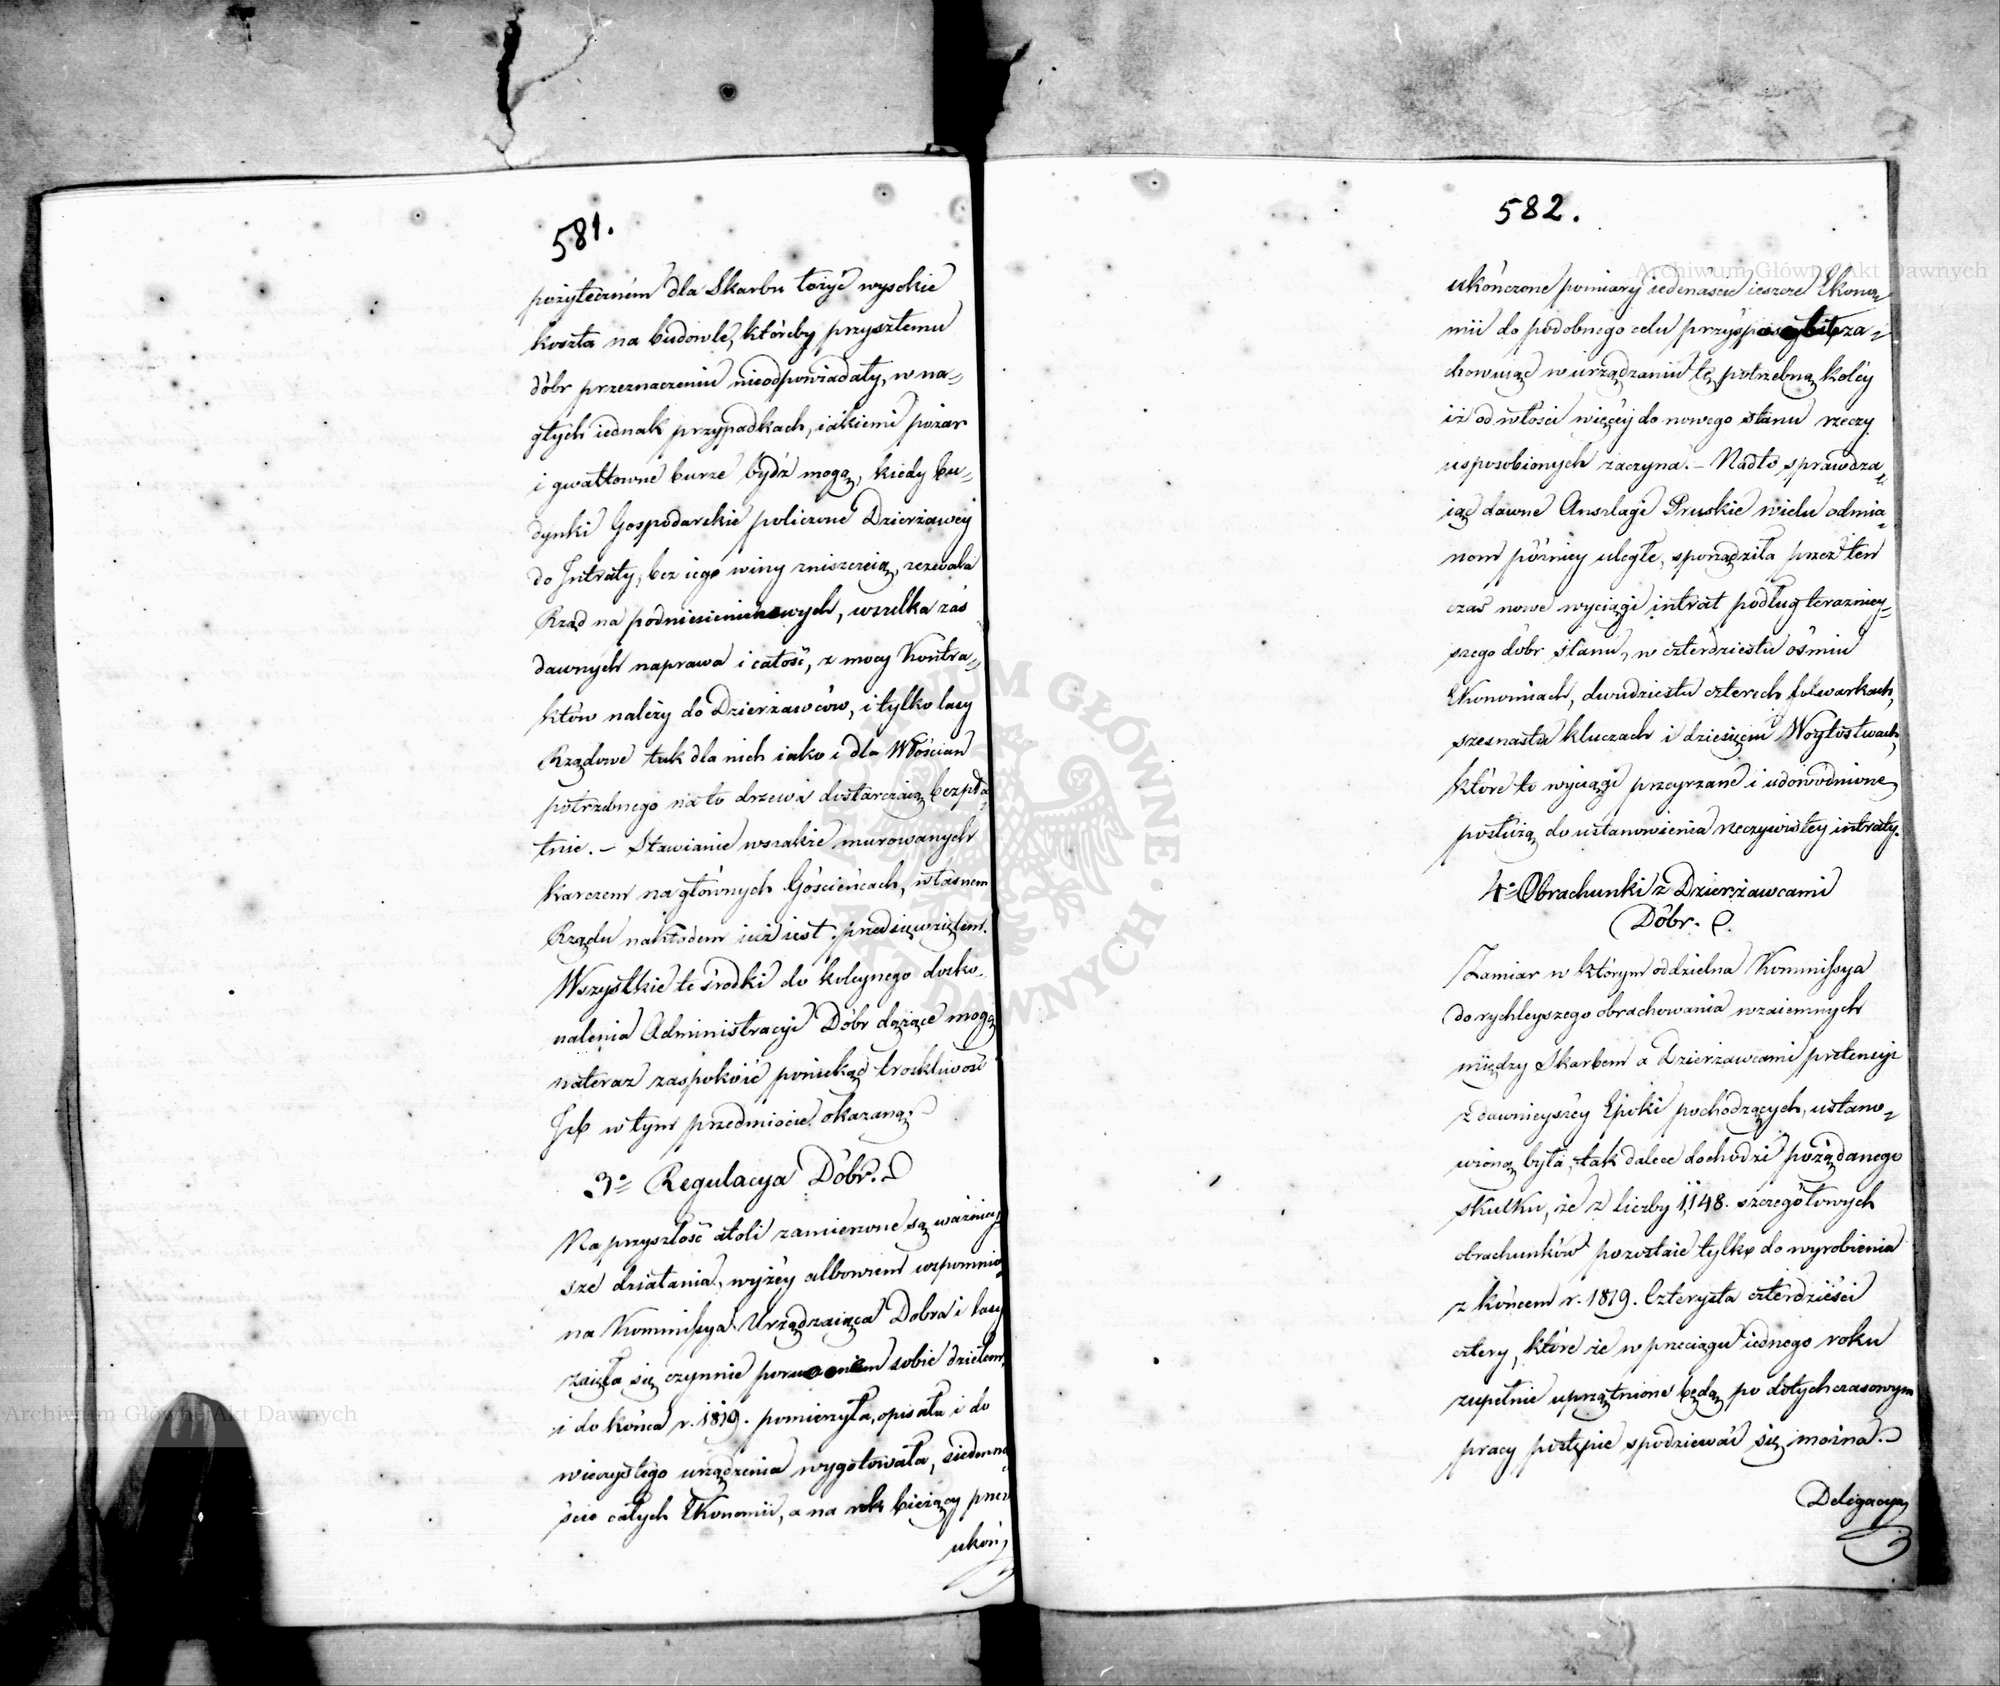 581.
pożyteczném dla Skarbu łożyć wysokie
koszta na budowle, któreby przyszłemu
dóbr przeznaczeniu nieodpowiadały, w na=
głych iednak przypadkach, iakiemi pożar
i gwałtowne burze bydź mogą, kiedy bu=
dynki Gospodarskie policzone Dzierżawcy
do Intraty, bez iego winy zniszczeią, zezwala
Rząd na podniesienie nowych, wszelka zaś
dawnych naprawa i całość, z mocy Kontra=
któw należy do Dzierżawców, i tylko lasy
Rządowe tak dla nich iako i dla Włościan
potrzebnego na to drzewa dostarczaią bezpła=
tnie. – Stawianie wszakże murowanych
karczem na głównych Gościeńcach, własnem
Rządu nakładem iuż iest przedsięwziętem.
Wszystkie te środki do koleynego dosko=
nalenia Administracyi Dóbr dążące mogą
nateraz zaspokoić poniekąd troskliwość
Izb w tym przedmiocie okazaną.
3º Regulacya Dóbr.
Na przyszłość atoli zamierzone są ważniey=
sze działania, wyżéy albowiem wspomnio=
na Kommissya Urządzaiąca Dobra i lasy
zaięła się czynnie poruczonem sobie dziełem,
i do końca r. 1819. pomierzyła, opisała i do
wieczystego urządzenia wygotowała, siedmna=
ście całych Ekonomii, a na rok bieżący przez
ukoń=
582.
ukończone pomiary iedenaście ieszcze Ekono=
mii do podobnego celu przysposobiła, za=
chowuiąc w urządzaniu tę potrzebną koléy
iż od włości więcéy do nowego stanu rzeczy
usposobionych zaczyna. – Nadto, sprawdza=
iąc dawne Anszlagi Pruskie wielu odmia=
nom późniey uległe, sporządziła przez ten
czas nowe wyciągi intrat podług teraźniey=
szego dóbr stanu, w czterdziestu ośmiu
Ekonomiach, dwudziestu czterech folwarkach,
szesnastu kluczach i dziesięciu Woytostwach,
które to wyciągi przeyrzane i udowodnione
posłużą do ustanowienia rzeczywistey intraty.
4º Obrachunki z Dzierżawcami
Dóbr.
Zamiar w którym oddzielna Kommissya
do rychleyszego obrachowania wzaiemnych
między Skarbem a Dzierżawcami pretensyi
z dawnieyszéy Epoki pochodzących, ustano=
wioną była, tak dalece dochodzi pożądanego
skutku, że z liczby 1,148. szczegółowych
obrachunków pozostaie tylko do wyrobienia
z końcem r. 1819. Czterysta czterdzieści
cztery, które że w przeciągu iednego roku
zupełnie uprzątnione będą po dotychczasowym
pracy postępie spodziewać się można.
Delegacya
Archiwum Główne Akt Dawnych
Archiwum Główne Akt Dawnych
ARCHIWUM GŁÓWNE AKT DAWNYCH